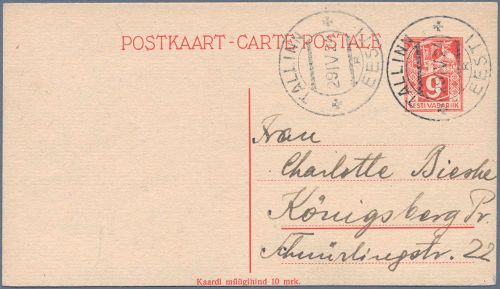 POSTKAART - CARTE POSTALE
TALLINN EESTI
29 IV
TALLINN EESTI
9
EESTI VABARIIK
Frau
Charlotte
Königsberg Pr.
22
Kaardi müügihind 10 mrk.